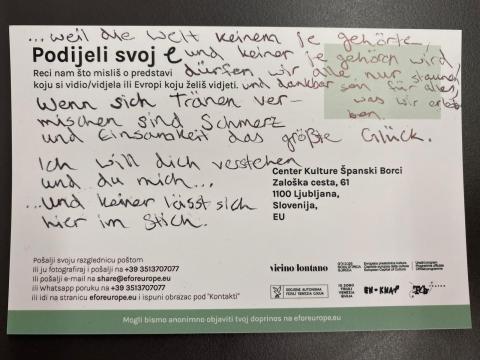 ...weil die Welt keinem je gehörte,
Podijeli svoj e
und keiner je gehören wird,
Reci nam što misliš o predstavi
dürfen wir alle nur staunen
koju si vidio/vidjela ili Evropi koju želiš vidjeti.
und dankbar sein für alles,
was wir erleben.
Wenn sich Tränen ver-
mischen sind Schmerz
und Einsamkeit das größte Glück.
Ich will dich verstehen
und du mich...
...und keiner lässt sich
hier im Stich.
Center Kulture Španski Borci
Zaloška cesta, 61
1100 Ljubljana,
Slovenija,
EU
Pošalji svoju razglednicu poštom
ili ju fotografiraj i pošalji na +39 3513707077
ili pošalji e-mail na share@eforeurope.eu
ili whatsapp poruku na +39 3513707077
ili idi na stranicu eforeurope.eu i ispuni obrazac pod "Kontakti"
vicino lontano
GO! 2025
NOVA GORICA
GORIZIA
REGIONE AUTONOMA
FRIULI VENEZIA GIULIA
IO SONO
FRIULI
VENEZIA
GIULIA
EN-KNAP
Mogli bismo anonimno objaviti tvoj doprinos na eforeurope.eu